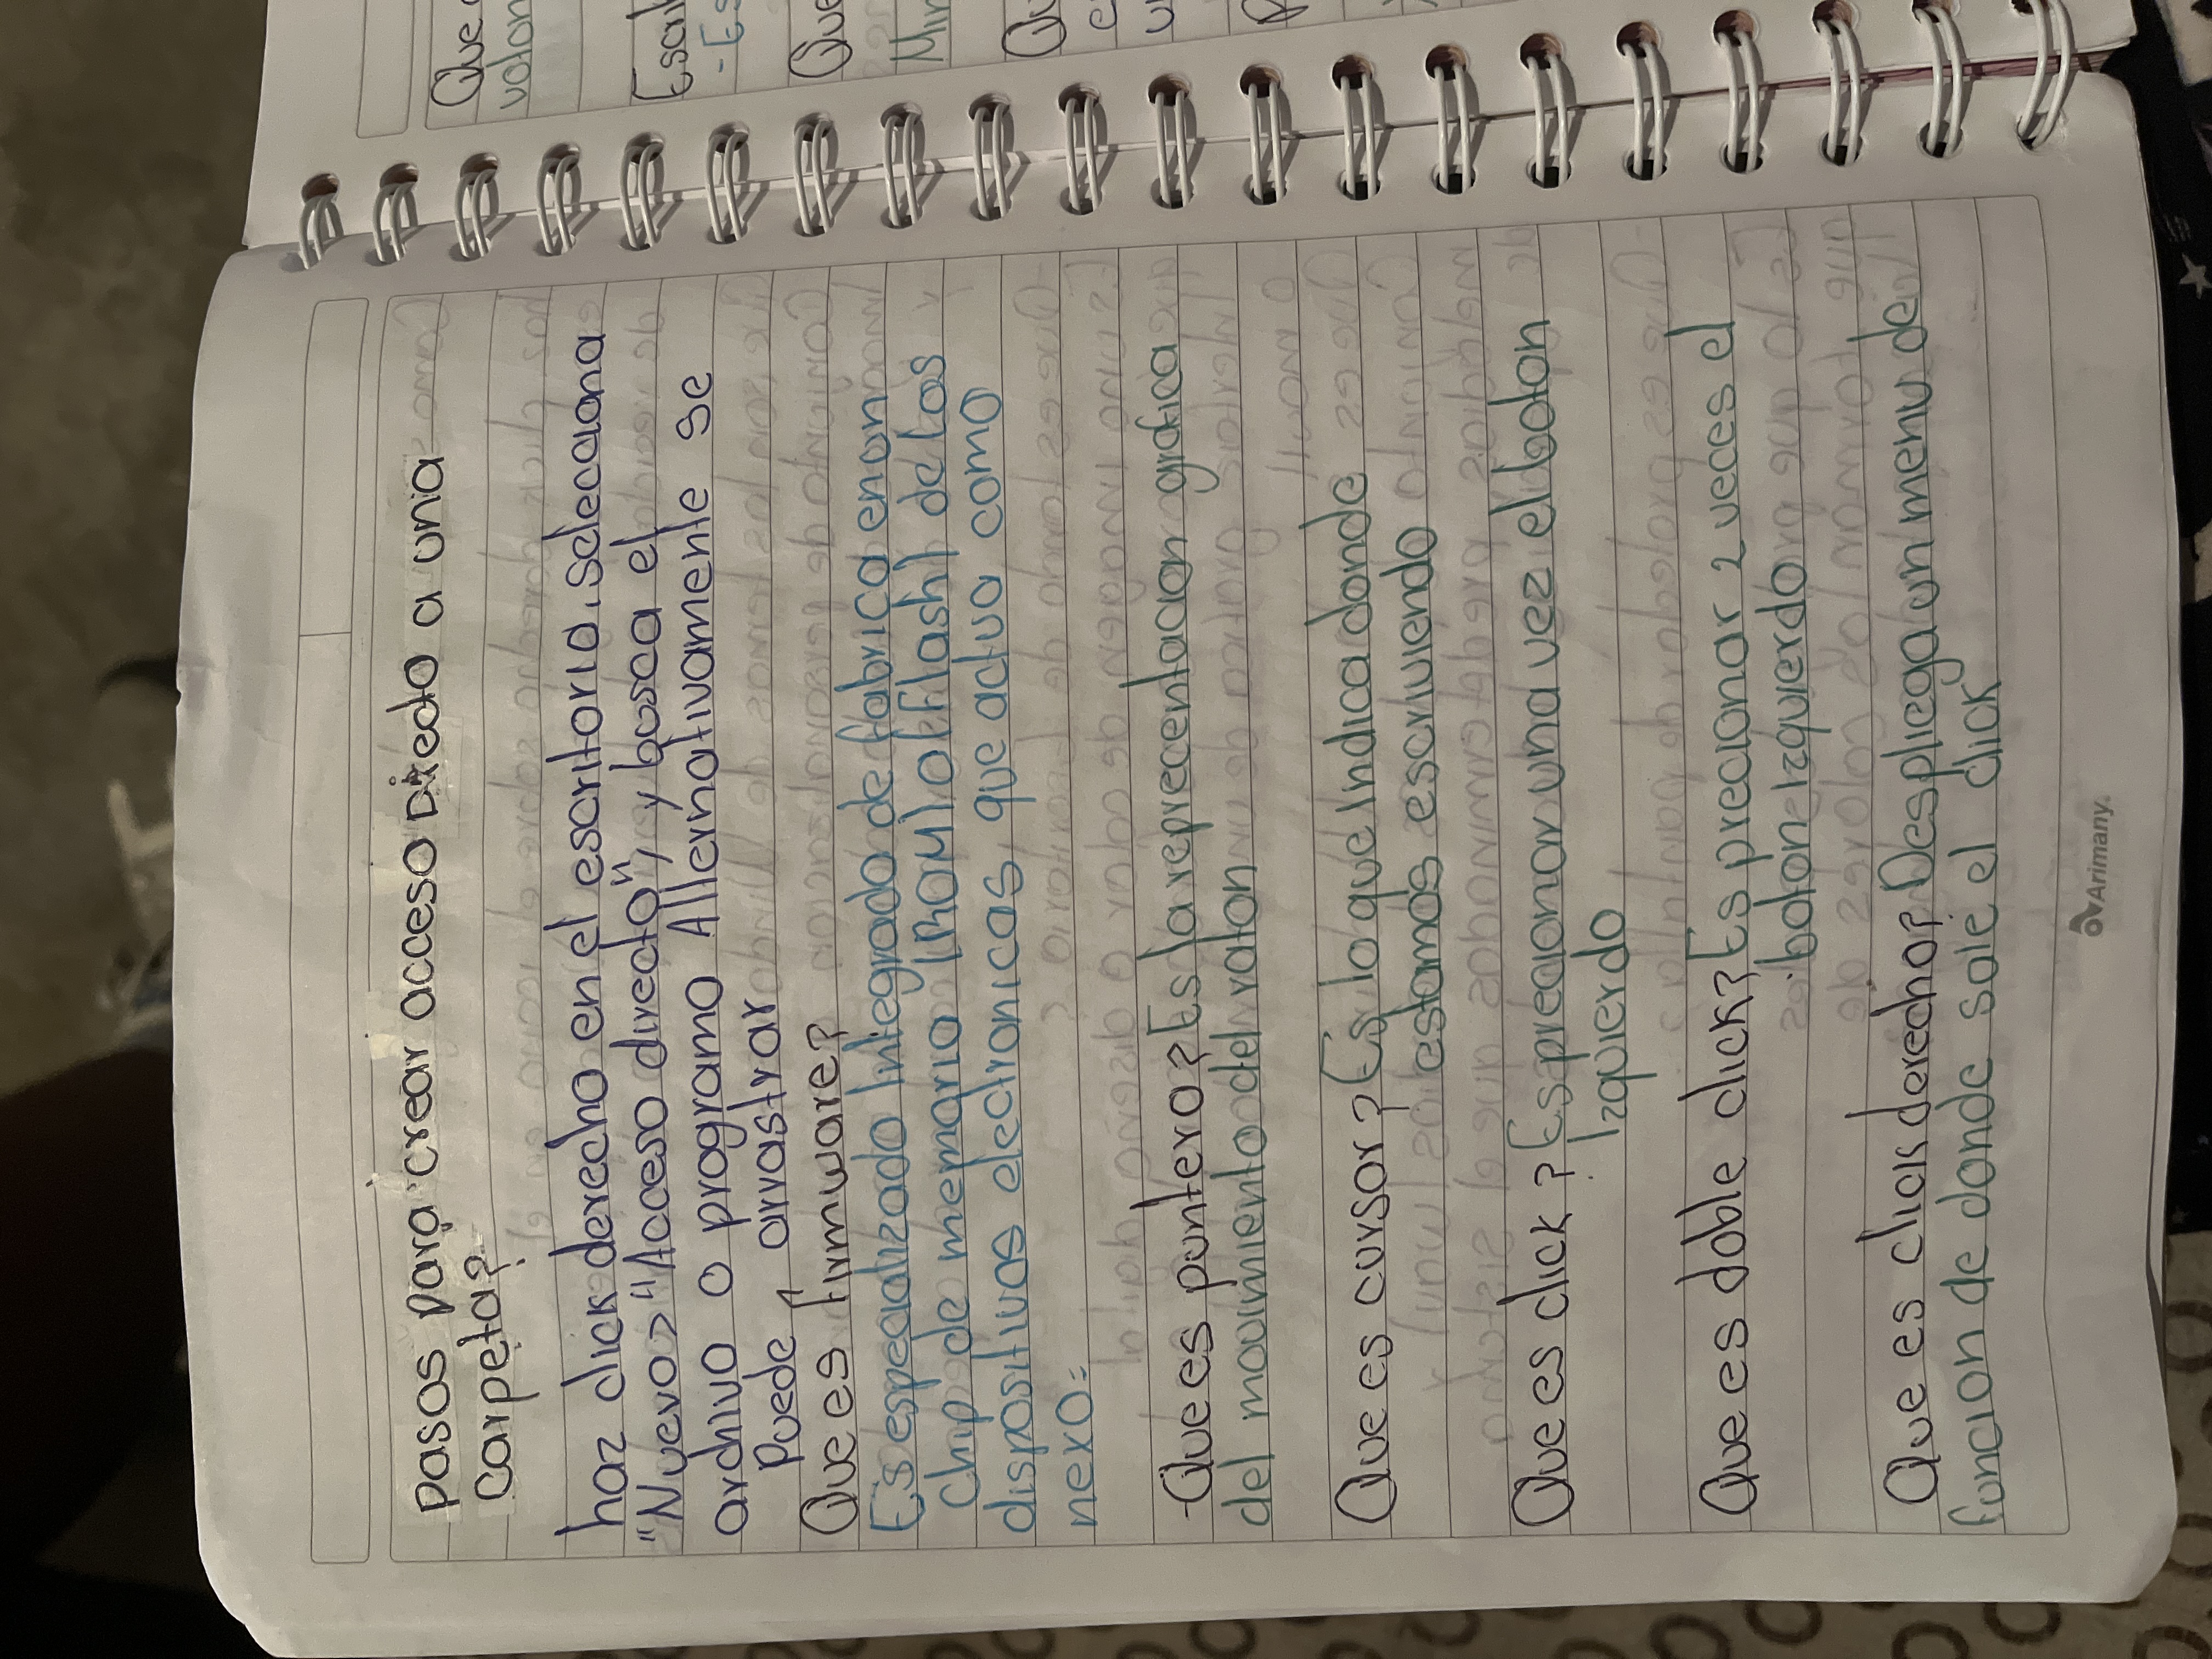 Pasos para crear acceso Directo a una
carpeta?
haz click derecho en el escritorio, selecciona
"Nuevo> "Acceso directo", y busca el
archivo o programa Alternativamente se
puede arrastrar
Que es firmware?
Es especializado Integrado de fabrica en un
Chip de memoria (ROM) o (Flash) de los
dispositivos electronicos, que actua como
nexo=
-Que es puntero? Es la reprecentacion grafica
del movimiento del raton
Que es cursor? Es lo que Indica donde
estamos escriviendo
Que es click? Es precionar una vez el boton
Izquierdo
Que es doble click? Es precionar 2 veces el
boton izquierdo
Que es click derecho? Despliega un menu de
funcion de donde sale el click
Arimany
Que
raton
- Es
Que
Min